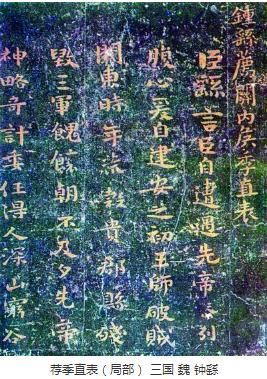 鍾繇薦關内侯季直表
臣繇言臣自遭遇先帝忝列
腹心爰自建安之初王師破賊
關東時年荒穀貴郡縣殘
毀三軍餽饟朝不及夕先帝
神略奇計委任得人深山窮谷
荐季直表（局部） 三国 魏 钟繇